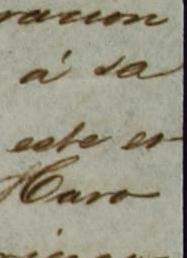 racion
á sa
este es-
Haro